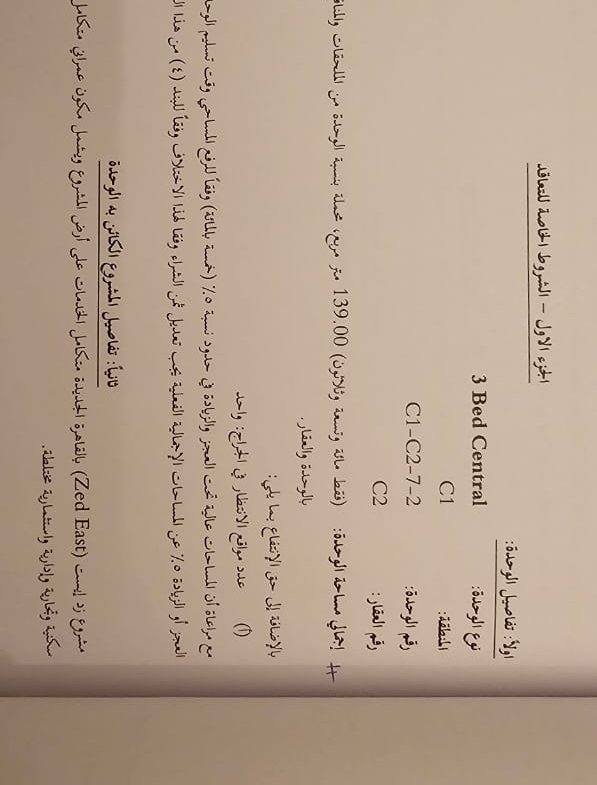 الجزء الاول – الشروط الخاصة للتعاقد
اولاً: تفاصيل الوحدة:
نوع الوحدة: 3 Bed Central
المنطقة: C1
رقم الوحدة: C1-C2-7-2
رقم العقار: C2
إجمالي مساحة الوحدة: (فقط مائة وتسعة وثلاثون) 139.00 متر مربع، محملة بنسبة الوحدة من الملحقات والمنافع
بالوحدة والعقار.
بالإضافة إلى حق الإنتفاع بما يلي:
(أ) عدد مواقع الانتظار في الجراج: واحد
مع مراعاة أن المساحات عالية تحت العجز والزيادة في حدود نسبة ٥٪ (خمسة بالمائة) وفقاً للرفع المساحي وقت تسليم
العجز أو الزيادة ٥٪ عن المساحات الإجمالية الفعلية يجب تعديل ثمن الشراء وفقا لهذا الاختلاف وفقاً للبند (٤) من هذا
ثانياً: تفاصيل المشروع الكائن به الوحدة
مشروع زد إيست (Zed East) بالقاهرة الجديدة متكامل الخدمات على أرض المشروع ويشمل مكون عمراني متكامل
سكنية وتجارية وإدارية واستثمارية مختلطة.